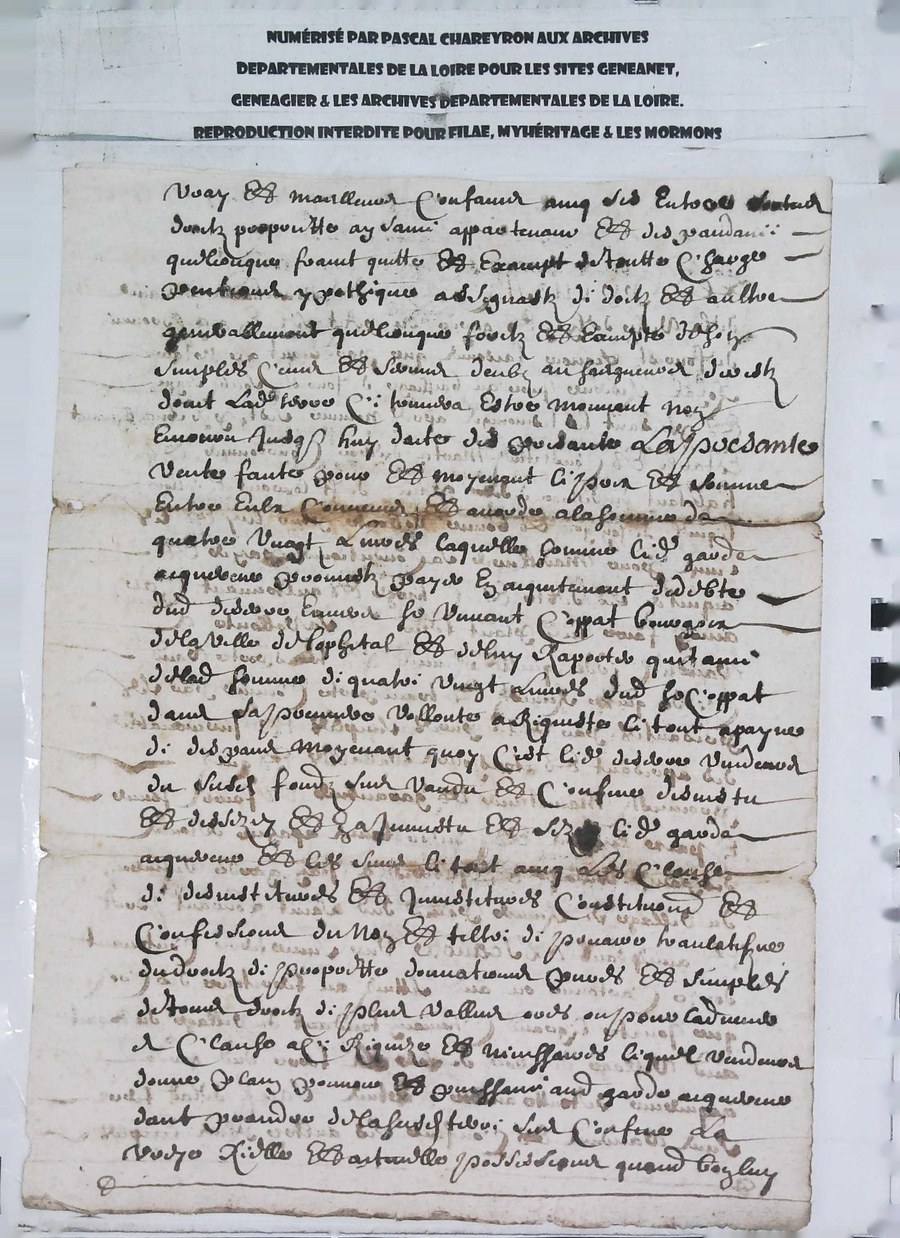 NUMÉRISÉ PAR PASCAL CHAREYRON AUX ARCHIVES
DEPARTEMENTALES DE LA LOIRE POUR LES SITES GENEANET,
GENEAGIER & LES ARCHIVES DEPARTEMENTALES DE LA LOIRE.
REPRODUCTION INTERDITE POUR FILAE, MYHÉRITAGE & LES MORMONS
vray et meilleurs Confains entree
droictz proprietté appartenant et dependant
quelconque franc quitte et Exampt de toutte Charge
ypothique et aultre
generallement quelconque et Exampte
simples Cens et
dont lad terre Ce trouvera Estre mouvant
jusq huy datte des presante La presante
vente faite pour et moyenant le prix et somme
Entre Eulx Convenue et accordee a la somme de
quatre vingt Livres laquelle somme led garde
acquereur promest payer En acquitement de debte
dud vincant Coppat bourgeois
de la ville de lophital et de luy Raporter quitance
de lad somme de quatre vingt Livres dud Coppat
dans sa premiere vollonté a Requeste le tout a payne
de despans moyenant quoy C'est led vendeur
du susd fondz sus vandu et Confiné desmetu
et dessezy et led garde
acquereur et les siens le tout avec Les Clauses
de desmestitures et jnvestitures Constitution et
Confessions du Nom et tiltre de precaire translatifve
du droict de proprietté donnations pures et simples
de tous droictz de plus vallues ores ou pour ladvenir
et Clause a Ce Requize et necessaires lequel vendeur
donne plain pouvoir et puissance aud garde acquereur
dant prandre de la susd terre sus Confiné La
vraye Rielle et actuelle possessions quand bon luy